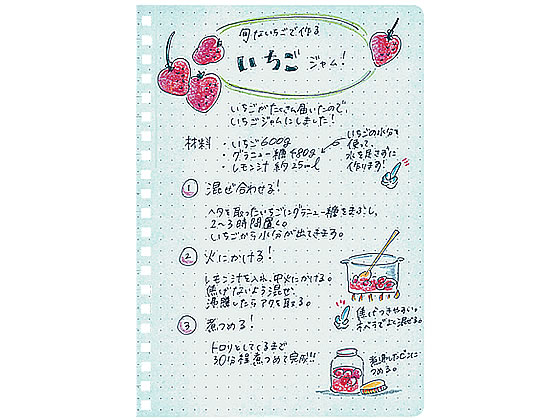 旬ないちごで作る
いちご ジャム!
いちごがたくさん届いたので、
いちごジャムにしました!
材料 ・いちご600g
・グラニュー糖480g
・レモン汁 約25ml
いちごの水分を
使って、
水を足さずに
作ります!
① 混ぜ合わせる!
ヘタを取ったいちごにグラニュー糖をまぶし、
2〜3時間置く。
いちごから水分が出てきます。
② 火にかける!
レモン汁を入れ、中火にかける。
焦げないよう混ぜ、
沸騰したらアクを取る。
焦げつきやすい。
木べラでよく混ぜる。
③ 煮つめる!
トロリとしてくるまで
30分程煮つめて完成!!
煮沸したビンに
つめる。